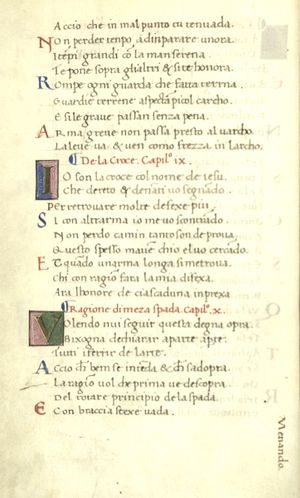 Accio che in mal punto tu tenuada.
Non perder tempo adinparare unora.
I tẽpi grandi cõ la man serena
Te pone sopra gli altri & fa te honora.
Rompe ogni guardia che fatta terrena
Guardie terrene aspecta picol carcho.
E sile grave passan senza pena.
Arma greve non passa presto al varcho.
La leue va & ven como frezza in larcho.
De la Croce. Capil° ix.
Io son la croce col nome de iesu.
Che dereto & denāti vo segnādo.
Per retrouare molte defexe piu
Si con altrarma io me vo scontrādo.
Non perdo camin tanto son de prova.
Questo spesso maueñ chio el uo cercādo.
Et quādo unarma longa si me trova.
Chi con ragiõ fara la mia difexa.
Ara lhonore de ciascaduna inprexa
Ragione di meza spada. Capil° x.
Volendo nui seguir questa degna opra.
Bixogna dechiarar aparte aparte.
Tutti iferir de larte.
Accio chel bem se intẽda & chel sadopra.
La ragiõ vol che prima ve descopra.
Del rotare principio de la spada.
E con braccia stexe vada.
Vienando.